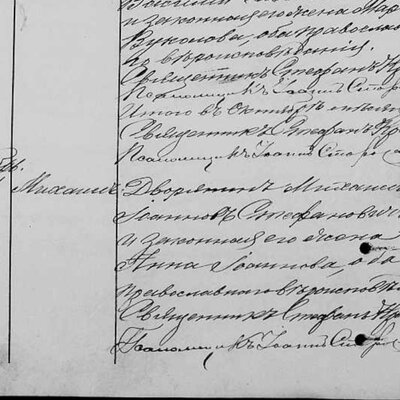 Василій
и законная его жена Мар
Вуколова, оба православна
го вѣроисповѣданія.
Священникъ Стефанъ Кр
Псаломщикъ Іоаннъ Сторо
Итого въ Октябрѣ
Священникъ Стефанъ Кр
Псаломщикъ Іоаннъ Сторо
Михаилъ
Дворянинъ Михаилъ
Іоанновъ Стефановичъ
и законная его жена
Анна Іоаннова, оба
православнаго вѣроисповѣ
Священникъ Стефанъ Кр
Псаломщикъ Іоаннъ Сторо